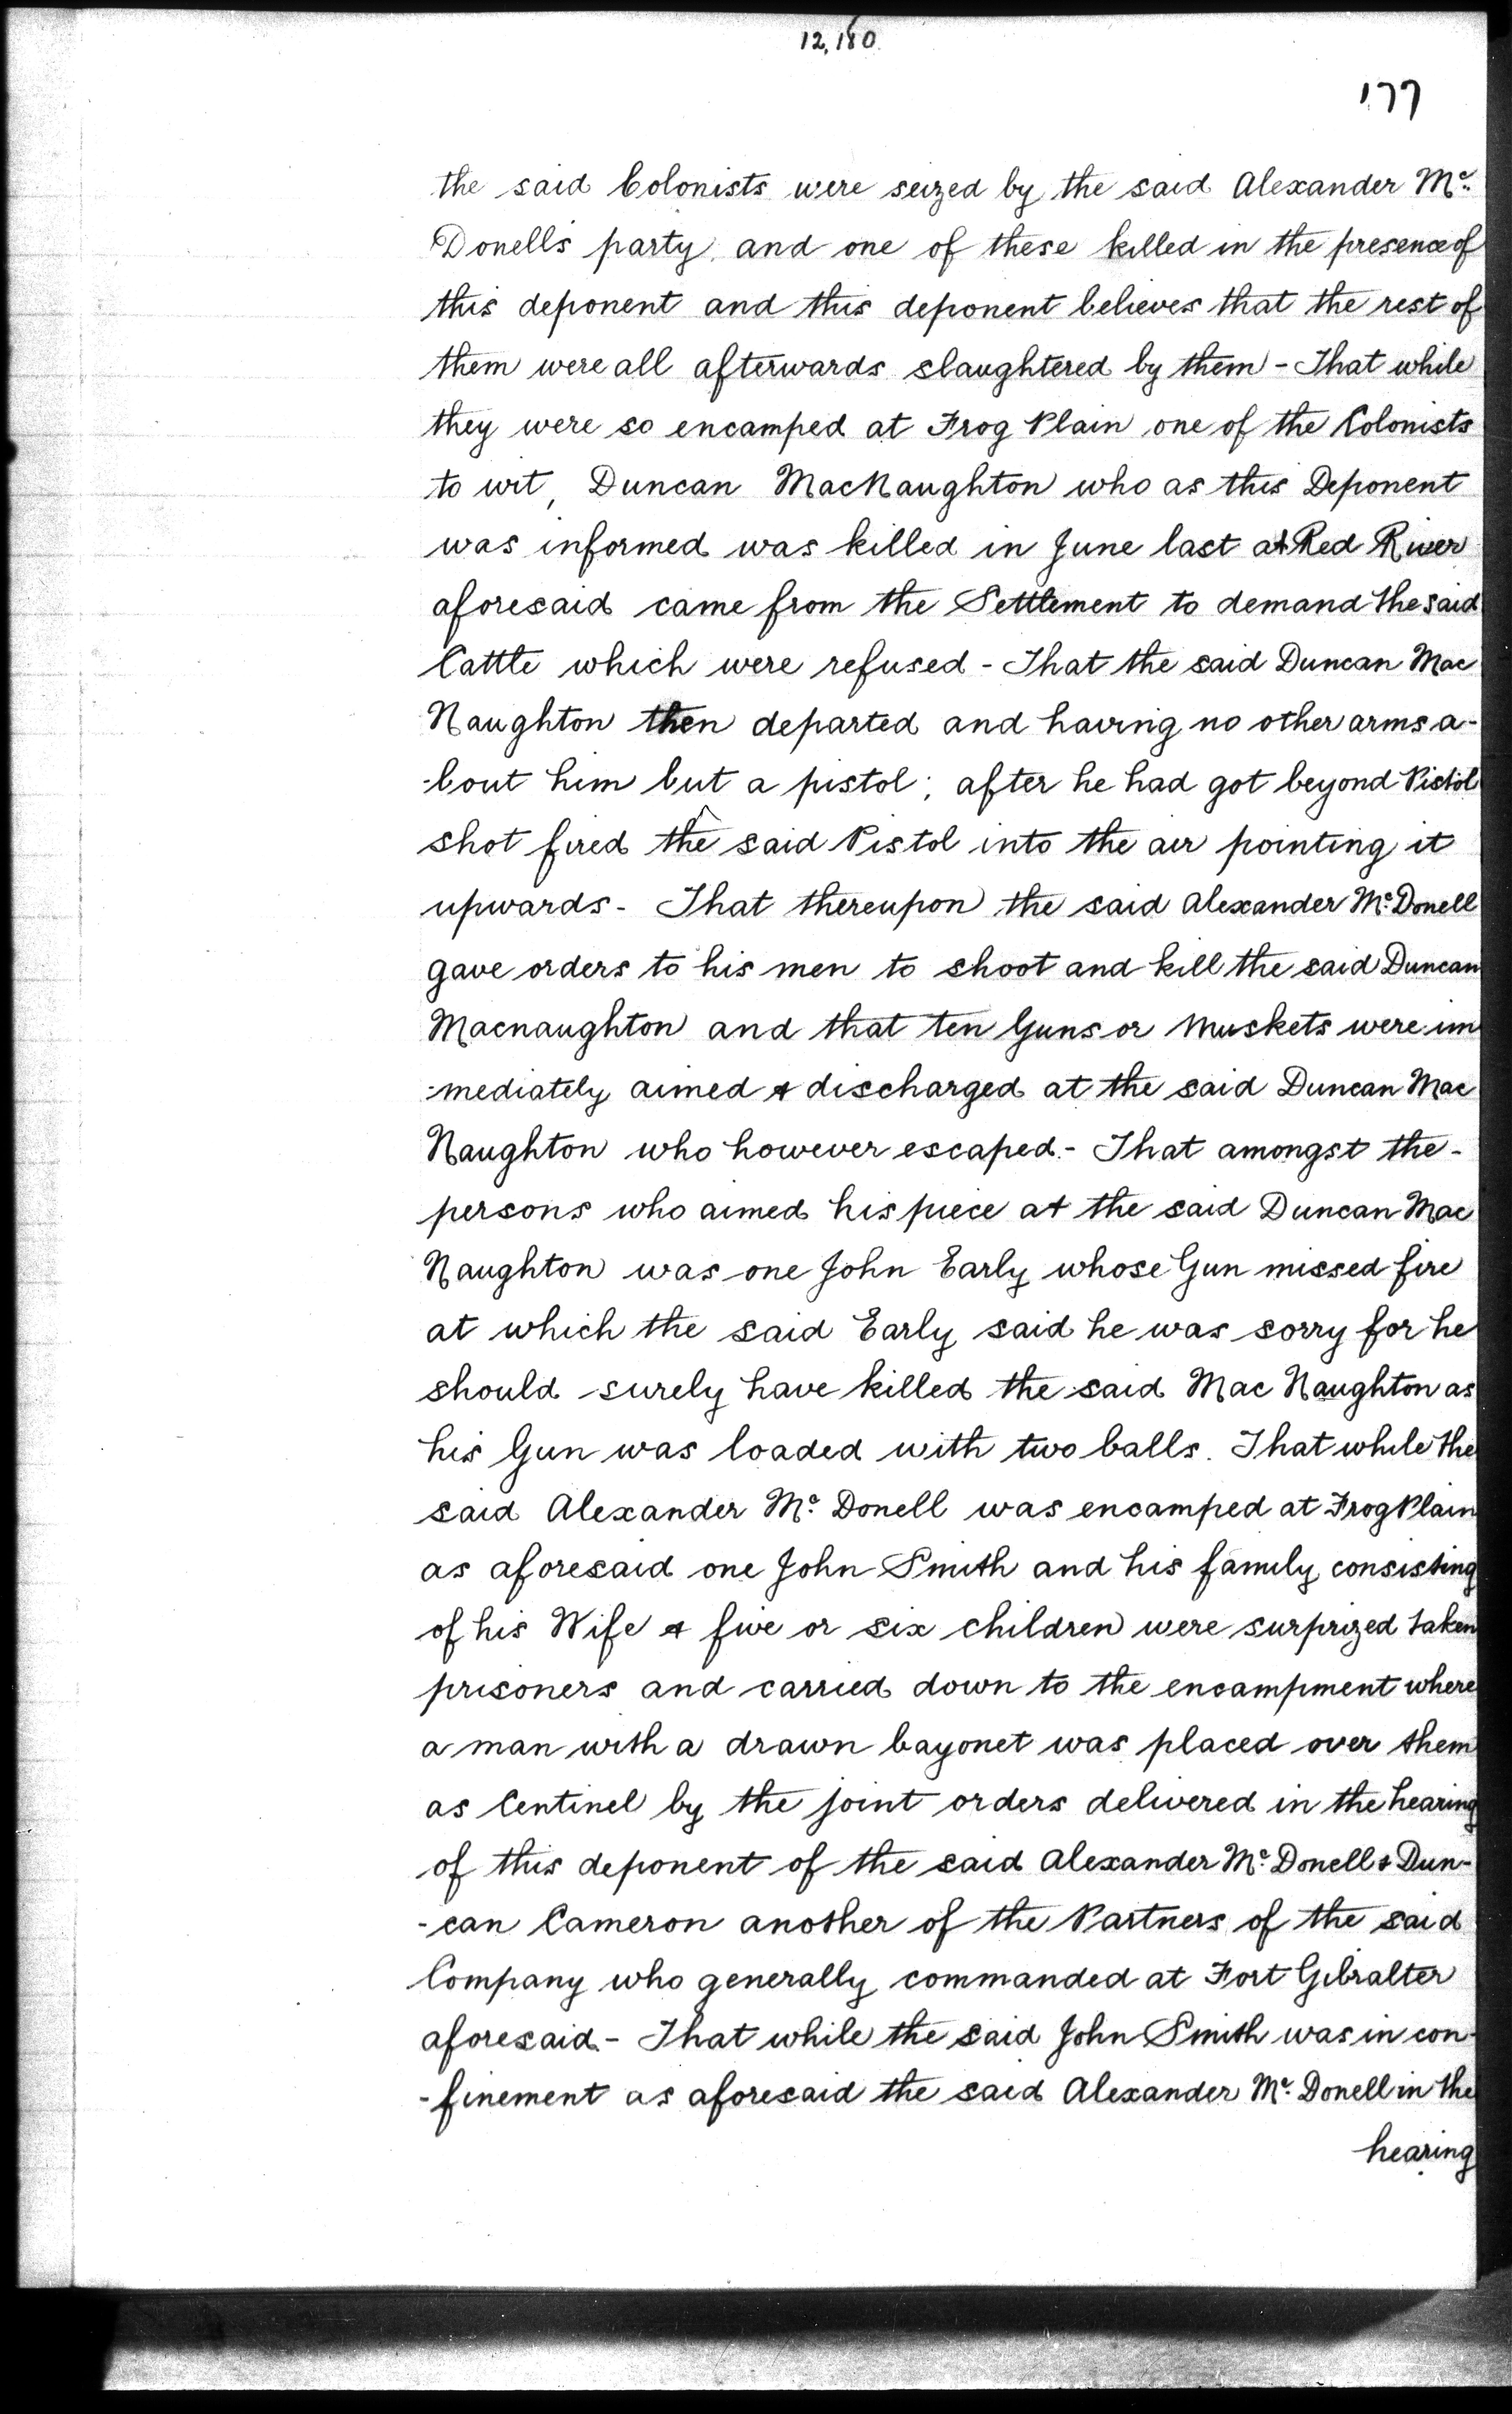 12,180
177
the said Colonists were seized by the said Alexander Mc.
Donell's party, and one of these killed in the presence of
this deponent and this deponent believes that the rest of
them were all afterwards slaughtered by them - That while
they were so encamped at Frog Plain one of the Colonists
to wit, Duncan MacNaughton who as this Deponent
was informed was killed in June last at Red River
aforesaid came from the Settlement to demand the said
Cattle which were refused - That the said Duncan Mac
Naughton then departed and having no other arms a-
-bout him but a pistol; after he had got beyond Pistol
shot fired the said Pistol into the air pointing it
upwards - That thereupon the said Alexander Mc. Donell
gave orders to his men to shoot and kill the said Duncan
Macnaughton and that ten Guns or Muskets were im
-mediately aimed & discharged at the said Duncan Mac
Naughton who however escaped. - That amongst the -
persons who aimed his piece at the said Duncan Mac
Naughton was one John Early whose Gun missed fire
at which the said Early said he was sorry for he
should surely have killed the said Mac Naughton as
his Gun was loaded with two balls. That while the
said Alexander Mc. Donell was encamped at Frog Plain
as aforesaid one John Smith and his family consisting
of his Wife & five or six children were surprized taken
prisoners and carried down to the encampment where
a man with a drawn bayonet was placed over them
as Centinel by the joint orders delivered in the hearing
of this deponent of the said Alexander Mc. Donell & Dun-
-can Cameron another of the Partners of the said
Company who generally commanded at Fort Gibralter
aforesaid. - That while the said John Smith was in con-
-finement as aforesaid the said Alexander Mc. Donell in the
hearing